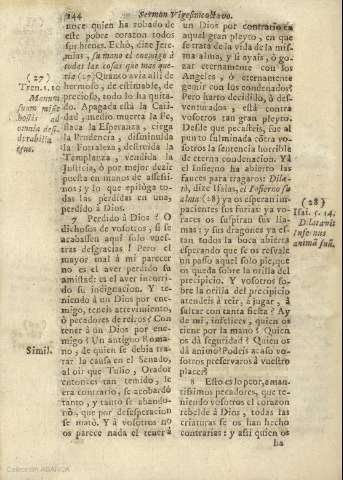 144 Sermon Vigesimooctavo.
noce quien ha robado de
este pobre corazon todos
sus bienes. Echò, dize Jere-
mias, su mano el enemigo à
todas las cosas que mas que-
ria (27) Quanto avia alli de
hermoso, de estimable, de
precioso, todo lo ha quita-
do. Apagada está la Cari-
dad, medio muerta la Fe,
flaca la Esperanza, ciega
la Prudencia, disminuida
la Fortaleza, destruida la
Templanza, vendida la
Justicia, ò por mejor dezir
puesta en manos de assesi-
nos; y lo que epiloga to-
das las perdidas en una,
perdido à Dios.
7 Perdido à Dios? O
dichosos de vosotros, si se
acabassen aqui solo vues-
tras desgracias! Pero el
mayor mal à mi parecer
no es el aver perdido su
amistad: es el aver incurri-
do su indignacion. Y te-
niendo à un Dios por ene-
migo, teneis atrevimiento,
ò pecadores de reiros? Con
tener à un Dios por ene-
migo? Un antiguo Roma-
no, de quien se debia tra-
tar la causa en el Senado,
al oir que Tulio, Orador
entonces tan temido, le
era contrario, se acobardó
tanto, y tanto se abando-
nò, que por desesperacion
se matò. Y à vosotros no
os parece nada el tener à
(27)
Tren. 1. 10
Manum
suam misit
hostis ad
omnia desi-
derabilia
ejus.
Simil.
un Dios por contrario en
aquel gran pleyto, en que
se trata de la vida de la mis-
ma alma, y si ayais, ò go-
zar eternamente con los
Angeles, ò eternamente
gemir con los condenados?
Pero harto decidido, ò des-
venturados, està contra
vosotros tan gran pleyto.
Desde que pecasteis, fue al
punto fulminada cõtra vo-
sotros la sentencia horrible
de eterna condenacion. Ya
el Infierno ha abierto las
fauces para tragaros: Dila-
tò, dize Isaias, el Infierno su
alma (28) ya os esperan im-
pacientes sus furias: ya vo-
races os suspiran sus lla-
mas: y sus dragones ya es-
tan todos la boca abierta
esperando que se os resvale
un passo aquel solo pie, que
os queda sobre la orilla del
precipicio. Y vosotros so-
bre la orilla del precipicio
atendeis à reir, à jugar, à
saltar con tanta fiesta? Ay
de mi, infelices, quien os
tiene por la mano? Quien
os dà seguridad? Quien os
dà animo? Podeis acaso vo-
sotros preservaros à vuestro
placer?
8 Esto es lo peor, aman-
tissimos pecadores, que te-
niendo vosotros el corazon
rebelde à Dios, todas las
criaturas se os han hecho
contrarias: y assi quien os
ha
(28)
Isai. 5. 14.
Dilatavit
Infernus
animã suã.
Colección ABANCA